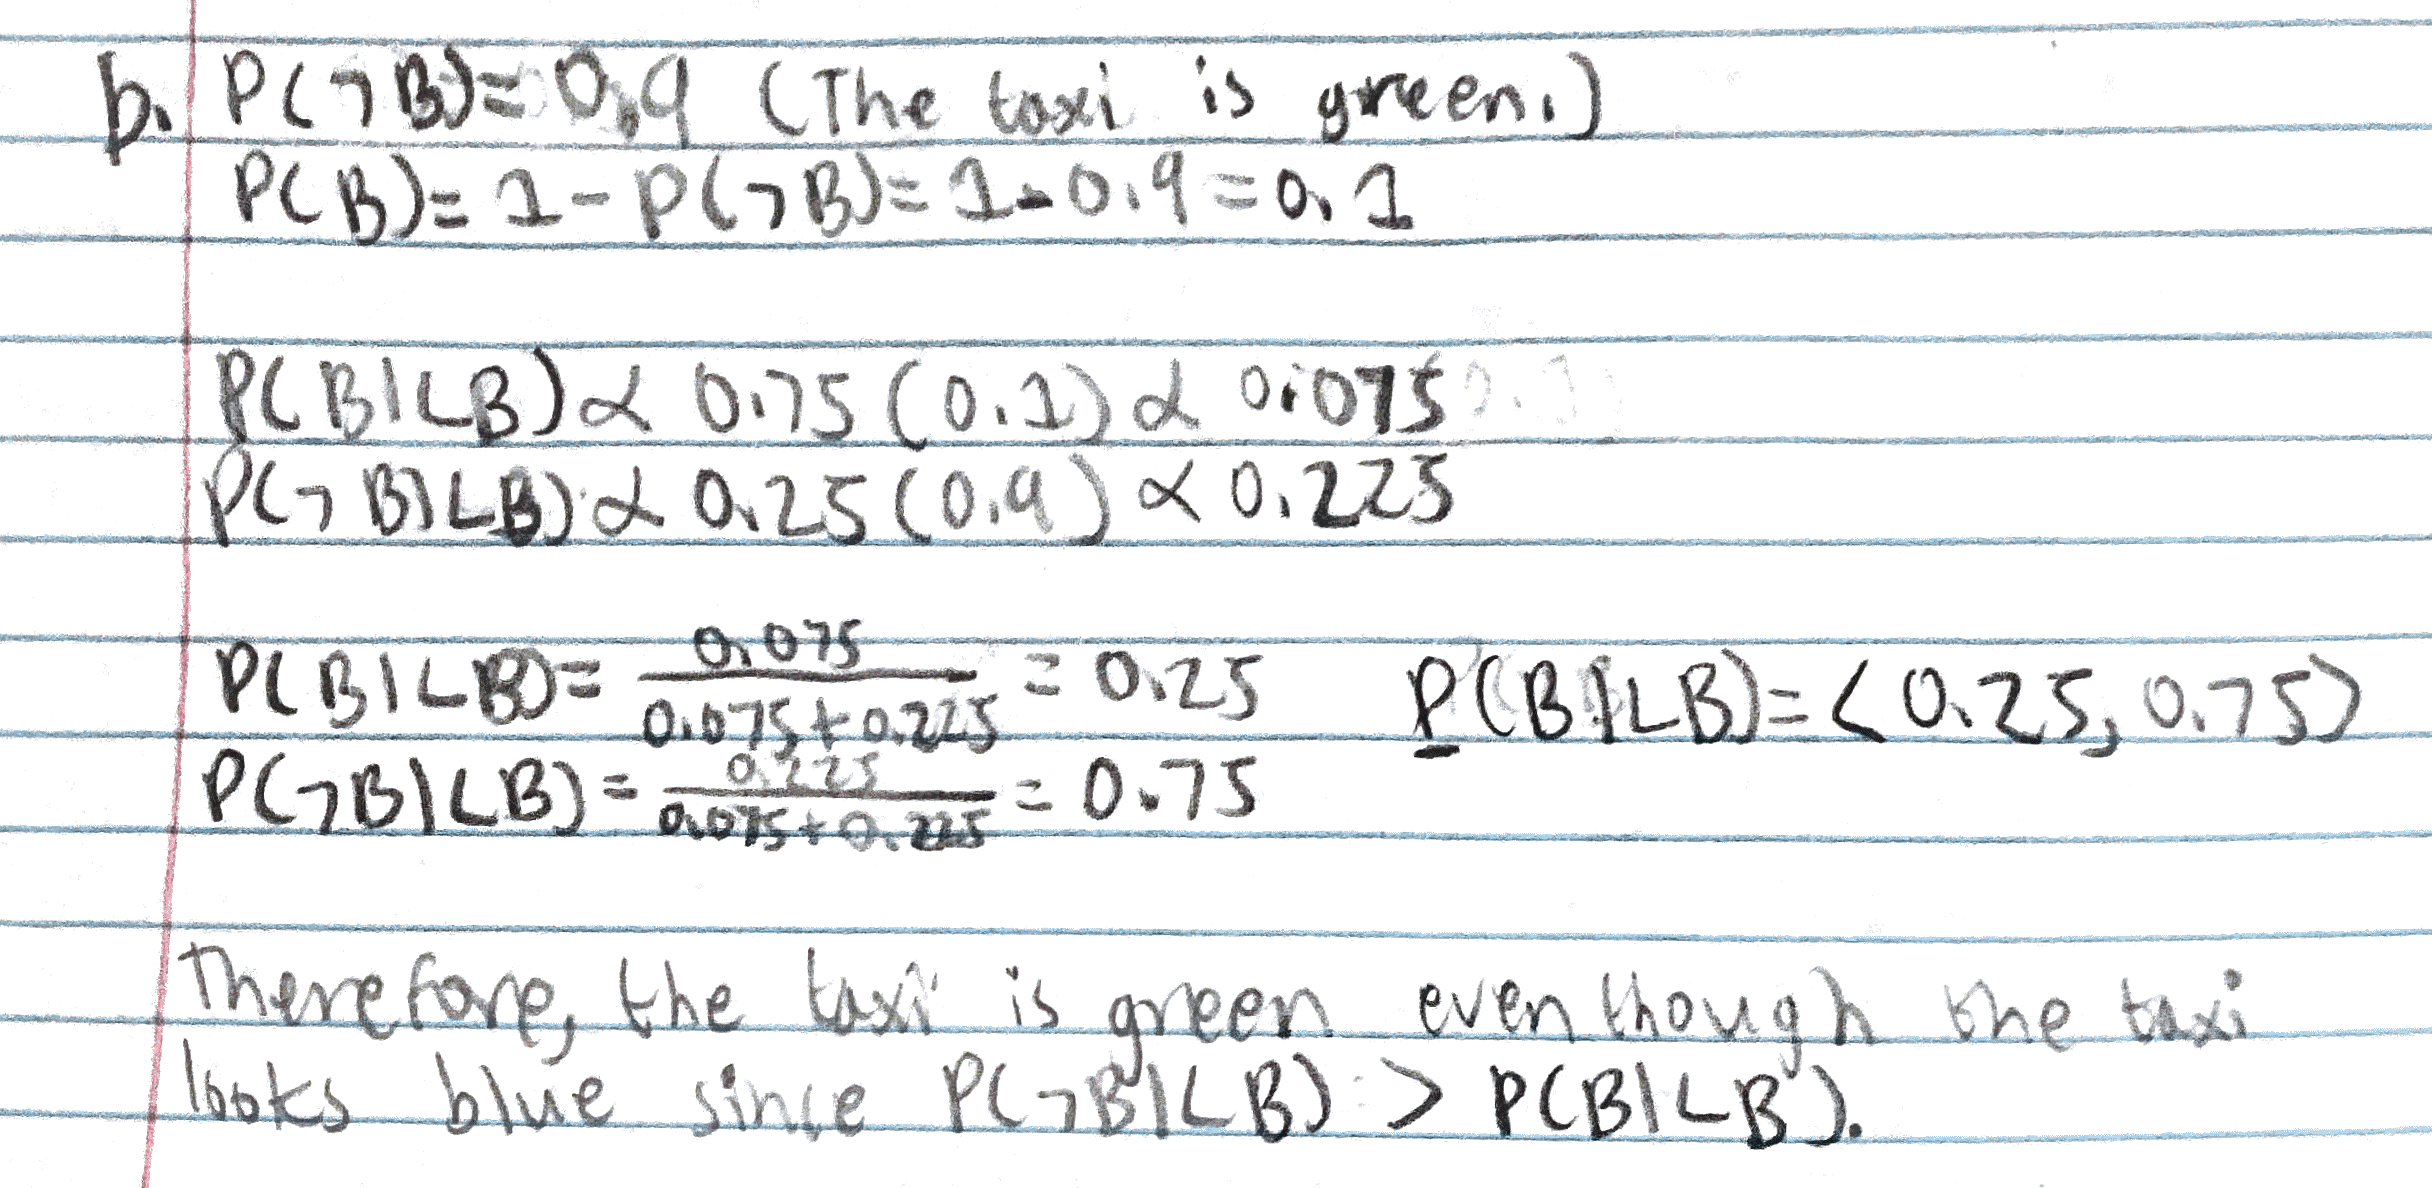 b. P(¬B)=0.9 (The taxi is green.)
P(B)=1-P(¬B)=1-0.9=0.1
P(B|LB)∝0.75(0.1)∝0.075
P(¬B|LB)∝0.25(0.9)∝0.225
P(B|LB)=0.075/(0.075+0.225)=0.25 P(B|LB)=<0.25, 0.75>
P(¬B|LB)=0.225/(0.075+0.225)=0.75
Therefore, the taxi is green even though the taxi
looks blue since P(¬B|LB) > P(B|LB).